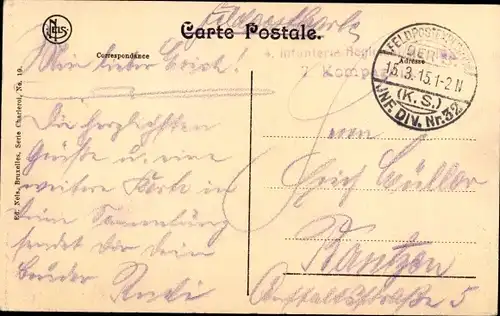 Feldpostkarte
Nels
Carte Postale.
Correspondance
Adresse
4. Infanterie Regi
7 Komp
FELDPOST
15.3.15.1-2 N
(K.S.)
JNF. DIV. Nr. 32
Mein lieber Erich!
Die herzlichsten
Grüße u. eine
weitere Karte in
Deine Sammlung
sendet Dir Dein
Bruder Rudi
Herrn
Erich Müller
Bautzen
straße 5
Ed. Nels, Bruxelles, Serie Charleroi, No. 19.